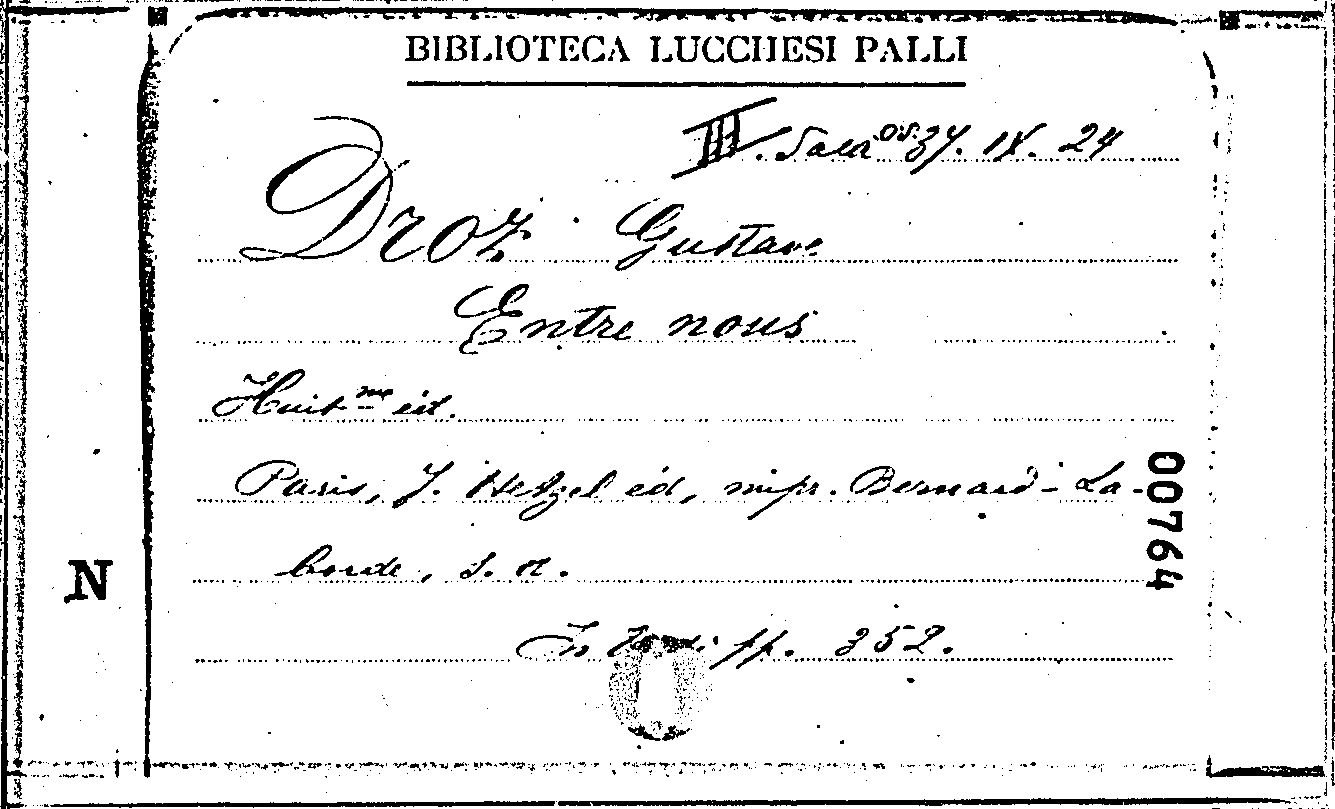 BIBLIOTECA LUCCHESI PALLI
III. Sala 37. IX. 24
Droz Gustave
Entre nous
Huit me éd.
Paris, J. Hetzel éd, impr. Bernard-La-
borde, s. a.
In pp. 352.
00764
N